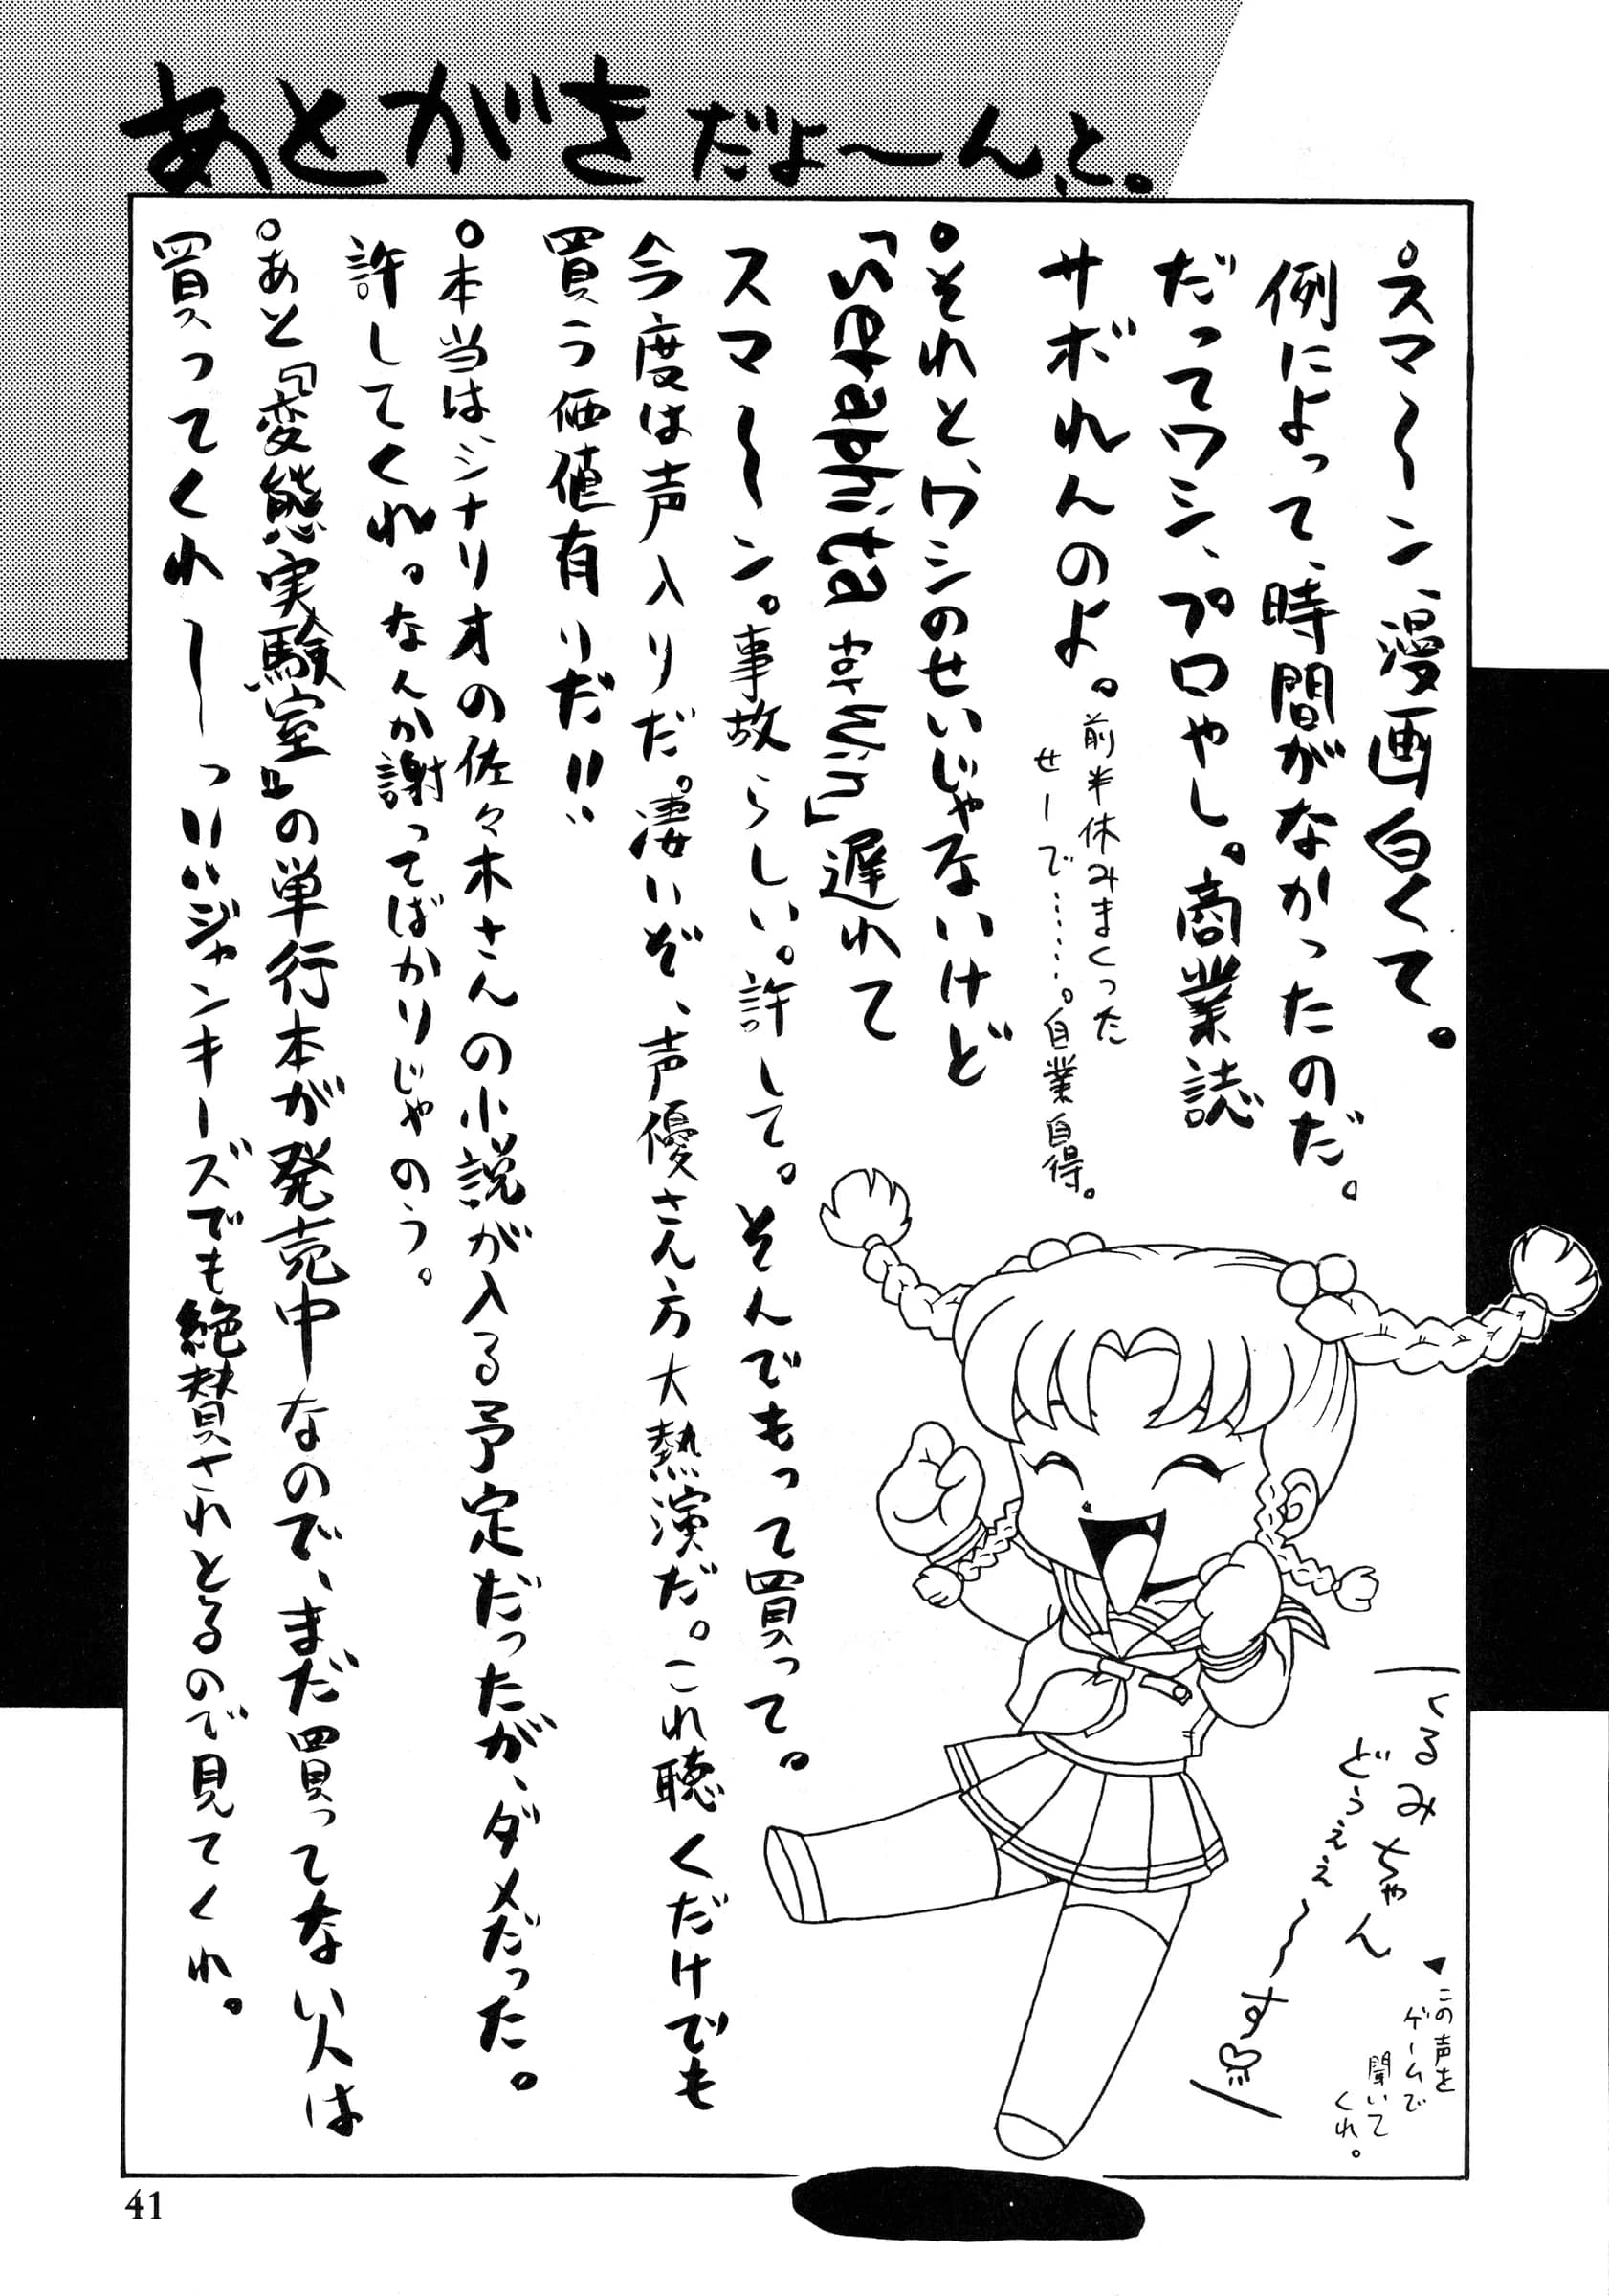 あとがきだよ〜ん、と。
。スマ〜ン、漫画白くて。
例によって、時間がなかったのだ。
だってワシ、プロやし。商業誌
サボれんのよ。
前半休みまくった
せーで……。自業自得。
。それと、ワシのせいじゃないけど
遅れて
スマ〜ン。事故らしい。許して。そんでもって買って。
今度は声入りだ。凄いぞ、声優さん方大熱演だ。これ聴くだけでも
買う価値有りだ!!
。本当はシナリオの佐々木さんの小説が入る予定だったが、ダメだった。
許してくれ。なんか謝ってばかりじゃのう。
。あと『変態実験室』の単行本が発売中なので、まだ買ってない人は
買ってくれ〜っ!!ジャンキーズでも絶賛されとるので見てくれ。
「くるみちゃん
どぅぇぇ〜〜す♡」
この声を
ゲームで
聞いて
くれ。
41